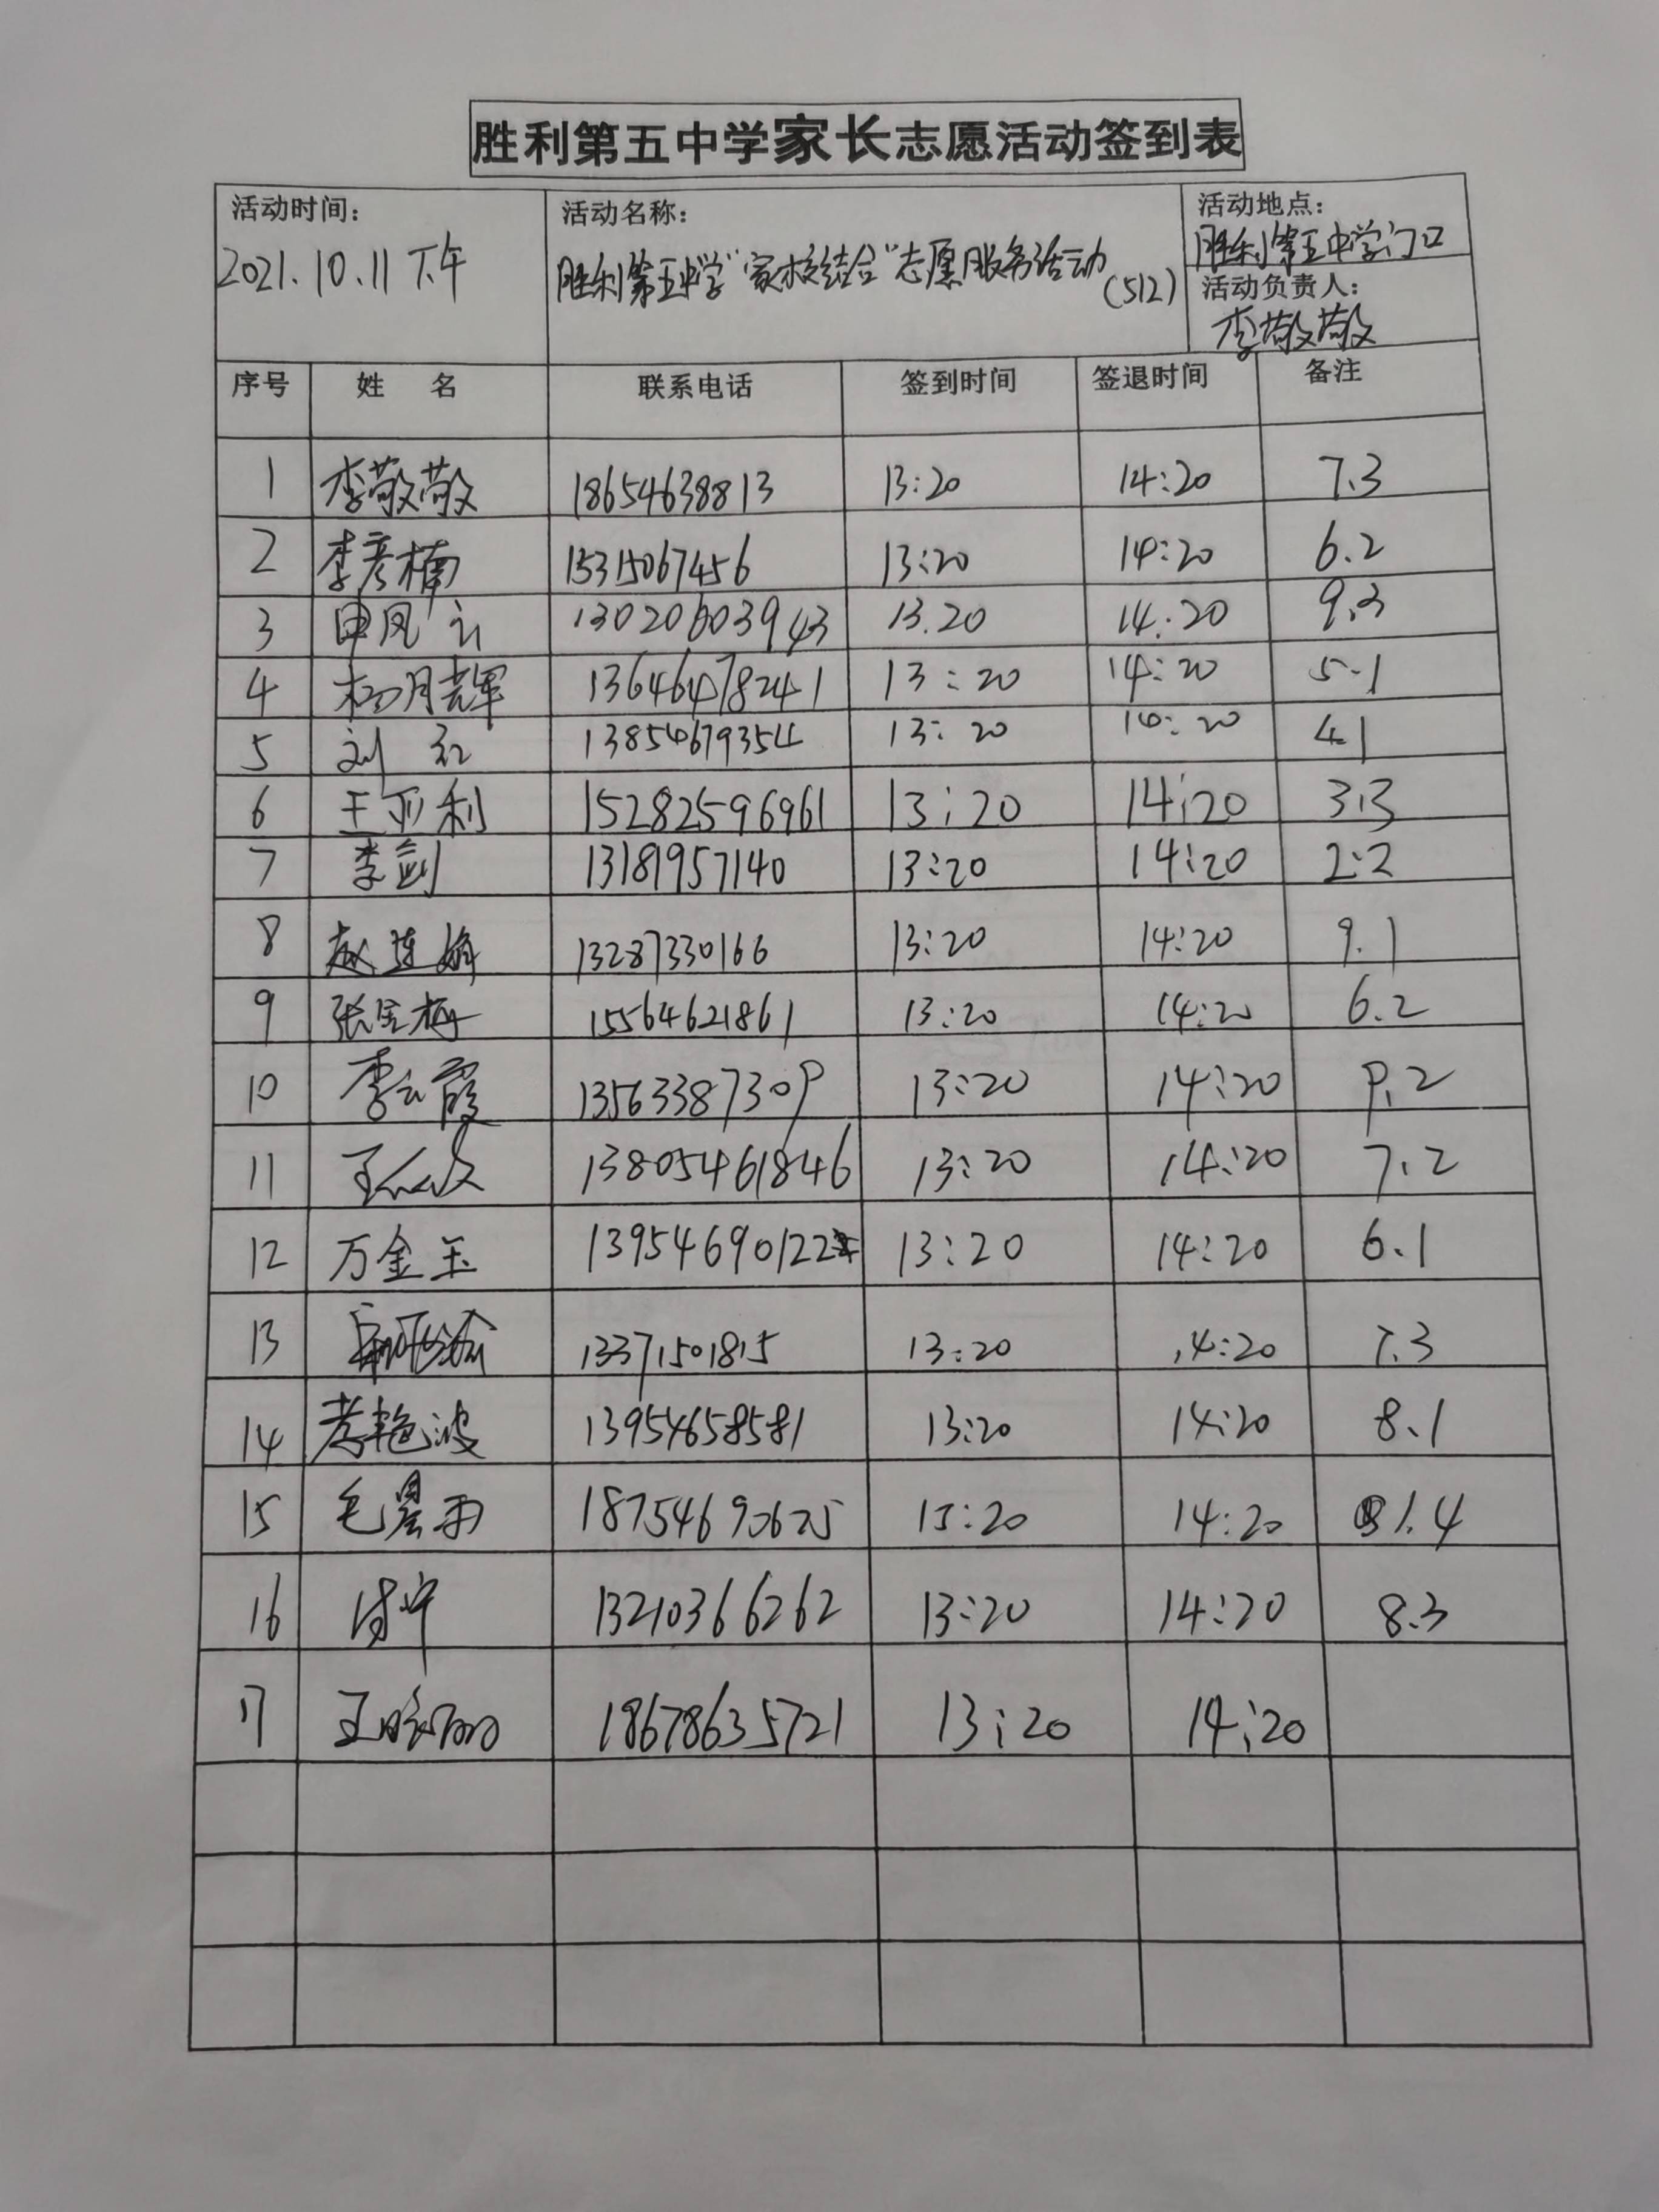 胜利第五中学家长志愿活动签到表
活动时间: 活动名称: 活动地点:
2021.10.11下午 胜利第五中学“家校结合”志愿服务活动(512) 胜利第五中学门口
活动负责人:
李敬敬
序号 姓 名 联系电话 签到时间 签退时间 备注
1 李敬敬 18654638813 13:20 14:20 7.3
2 李彦楠 15315067456 13:20 14:20 6.2
3 申风云 13020603943 13.20 14:20 9.3
4 杨月辉 13646478241 13:20 14:20 5.1
5 刘红 13854679354 13:20 14:20 4.1
6 王亚利 15282596961 13:20 14:20 3.3
7 李剑 13181957140 13:20 14:20 2.2
8 赵连娟 13287330166 13:20 14:20 9.1
9 张金梅 15564621861 13:20 14:20 6.2
10 李云霞 13563387309 13:20 14:20 9.2
11 13805461846 13:20 14:20 7.2
12 万金玉 13954690122 13:20 14:20 6.1
13 13371501815 13:20 14:20 7.3
14 老艳波 13954658581 13:20 14:20 8.1
15 毛星雨 18754690625 13:20 14:20 1.4
16 13210366262 13:20 14:20 8.3
17 18678635721 13:20 14:20